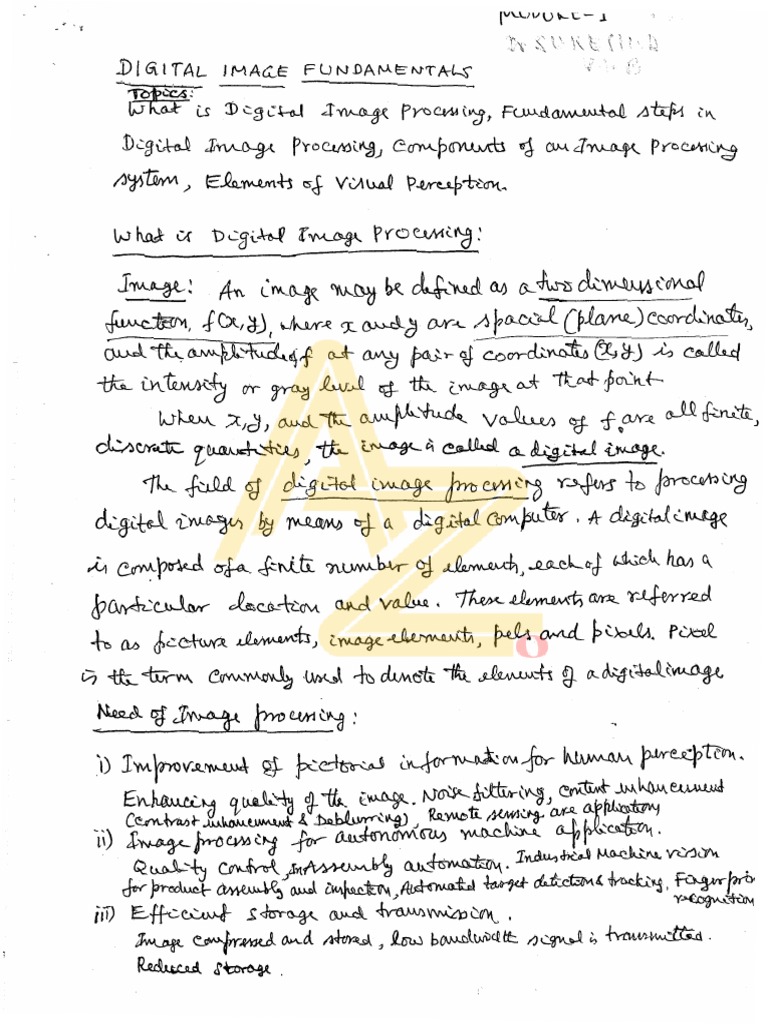 MODULE-1
DIGITAL IMAGE FUNDAMENTALS
Topics:
What is Digital Image Processing, Fundamental steps in
Digital Image Processing, Components of an Image Processing
system, Elements of Visual Perception.
What is Digital Image Processing:
Image: An image may be defined as a two dimensional
function, f(x,y), where x and y are spacial (plane) coordinates,
and the amplitude of f at any pair of coordinates (x,y) is called
the intensity or gray level of the image at that point
When x,y, and the amplitude values of f are all finite,
discrete quantities, the image is called a digital image.
The field of digital image processing refers to processing
digital images by means of a digital computer. A digital image
is composed of a finite number of elements, each of which has a
particular location and value. These elements are referred
to as picture elements, image elements, pels and pixels. Pixel
is the term commonly used to denote the elements of a digital image
Need of Image processing:
i) Improvement of pictorial information for human perception.
Enhancing quality of the image. Noise filtering, content enhancement
(contrast enhancement & Deblurring), Remote sensing are applications
ii) Image processing for autonomous machine application.
Quality control, in Assembly automation. Industrial Machine vision
for product assembly and inspection, Automated target detection & tracking, Fingerprin
recognition
iii) Efficient storage and transmission.
Image compressed and stored, low bandwidth signal is transmitted.
Reduced storage.